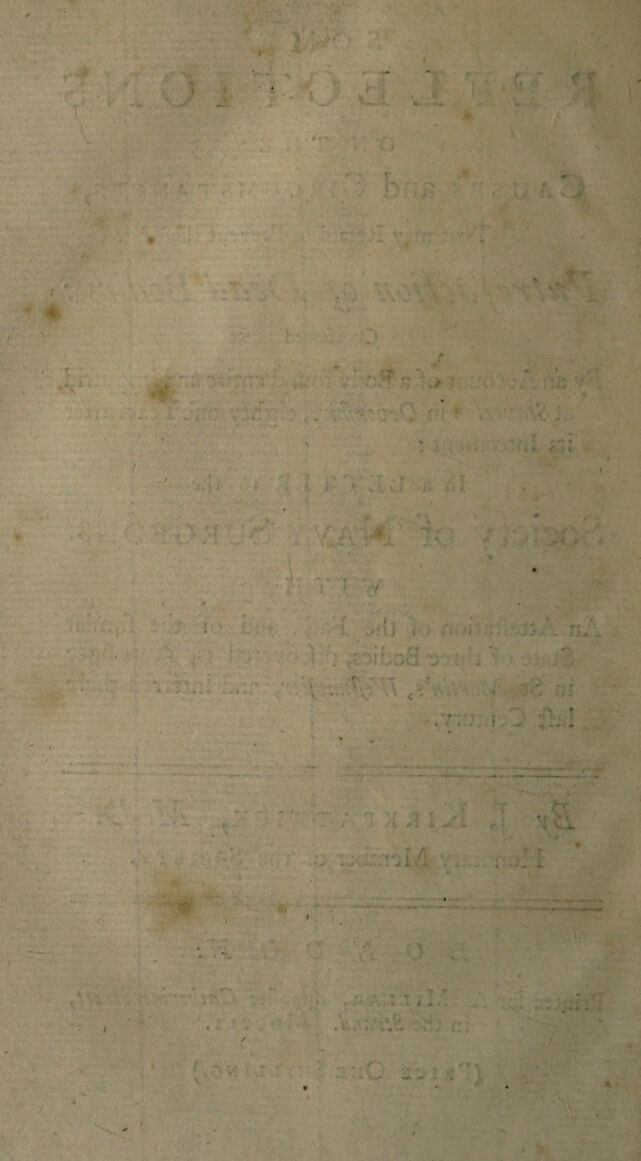 SOME
REFLECTIONS
ON THE
CAUSES and CIRCUMSTANCES,
That may Retard or Prevent the
Putrefaction of Dead Bodies;
By an Account of a Body found entire and imputrid,
at Staverton in Devonſhire, eighty one Years after
its Interment:
In a LETTER to the
Society of NAVY SURGEONS.
WITH
An Atteſtation of the Fact, and of the ſimilar
State of three Bodies, diſcovered
in St. Martin's, Weſtminſter, and interred there
laſt Century.
By J. KIRKPATRICK, M. D.
Honorary Member of the SOCIETY.
LONDON:
Printed for A. MILLAR, oppoſite Catherine-ſtreet,
in the Strand.
(PRICE ONE SHILLING.)